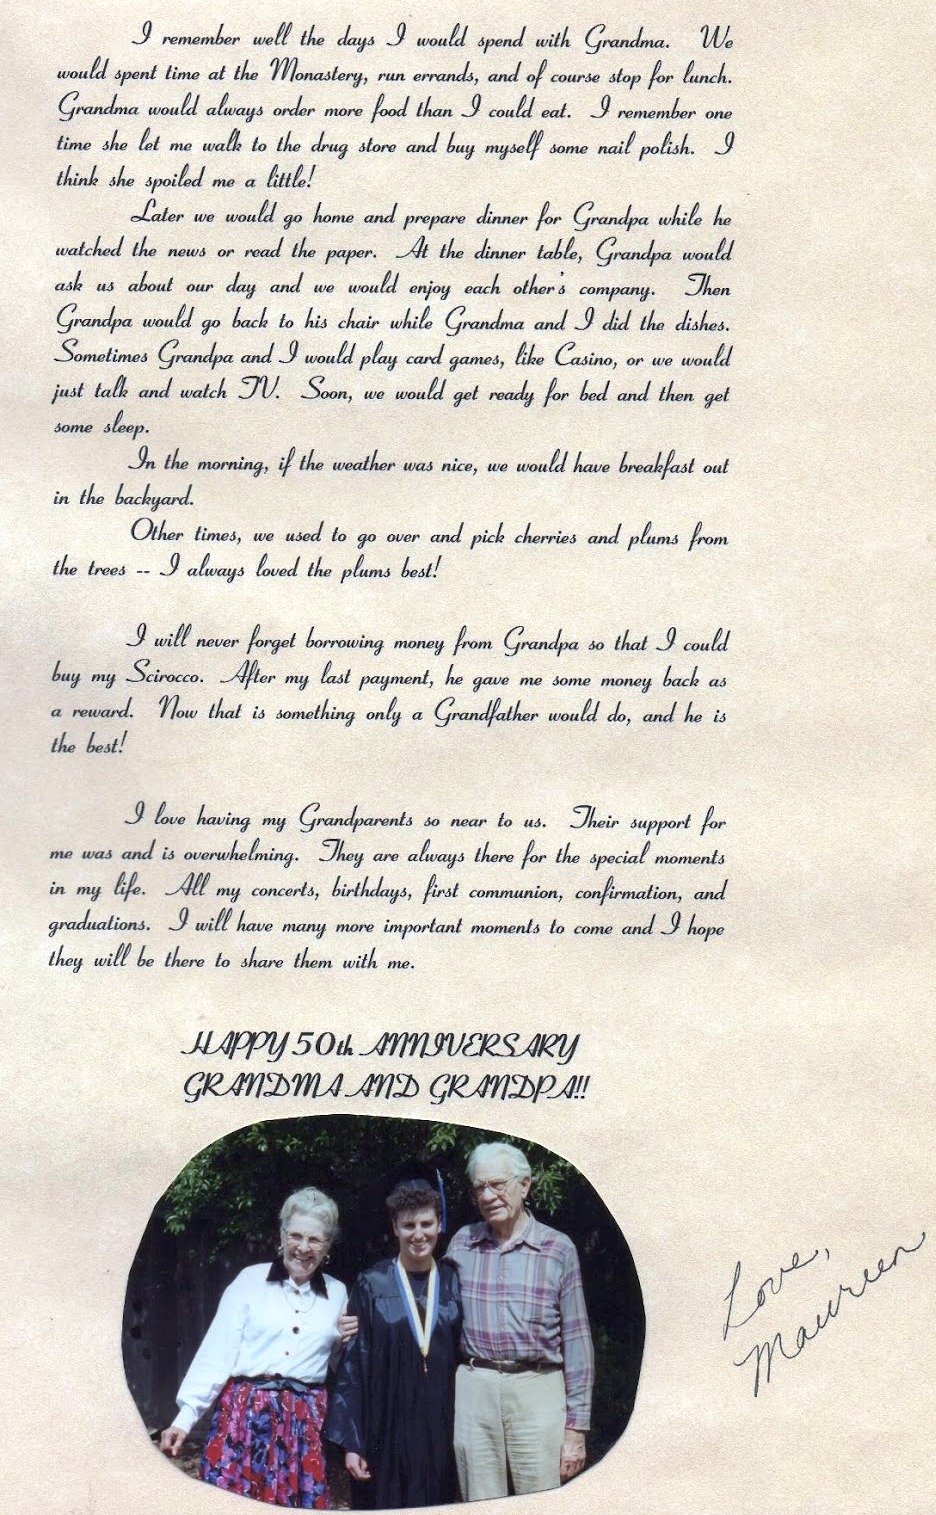 I remember well the days I would spend with Grandma. We
would spent time at the Monastery, run errands, and of course stop for lunch.
Grandma would always order more food than I could eat. I remember one
time she let me walk to the drug store and buy myself some nail polish. I
think she spoiled me a little!
Later we would go home and prepare dinner for Grandpa while he
watched the news or read the paper. At the dinner table, Grandpa would
ask us about our day and we would enjoy each other's company. Then
Grandpa would go back to his chair while Grandma and I did the dishes.
Sometimes Grandpa and I would play card games, like Casino, or we would
just talk and watch TV. Soon, we would get ready for bed and then get
some sleep.
In the morning, if the weather was nice, we would have breakfast out
in the backyard.
Other times, we used to go over and pick cherries and plums from
the trees -- I always loved the plums best!
I will never forget borrowing money from Grandpa so that I could
buy my Scirocco. After my last payment, he gave me some money back as
a reward. Now that is something only a Grandfather would do, and he is
the best!
I love having my Grandparents so near to us. Their support for
me was and is overwhelming. They are always there for the special moments
in my life. All my concerts, birthdays, first communion, confirmation, and
graduations. I will have many more important moments to come and I hope
they will be there to share them with me.
HAPPY 50th ANNIVERSARY
GRANDMA AND GRANDPA!!
Love,
Maureen